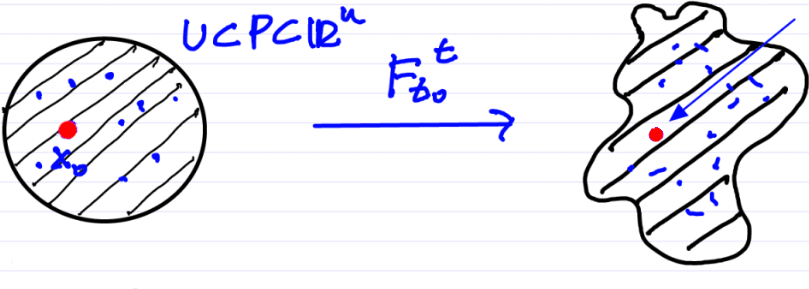 U⊂P⊂ℝⁿ
F_{t₀}^t
x₀